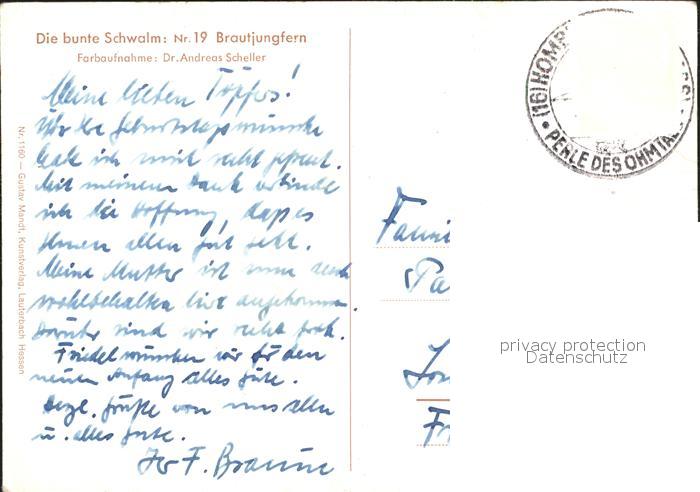 Die bunte Schwalm: Nr. 19 Brautjungfern
Farbaufnahme: Dr. Andreas Scheller
Meine lieben Töpfers!
Über die Geburtstagswünsche
habe ich mich recht gefreut.
Mit meinem Dank verbinde
ich die Hoffnung, daß es
Ihnen allen gut geht.
Meine Mutter ist nun auch
wohlbehalten hier angekommen.
Darüber sind wir recht froh.
Friedel wünschen wir für den
neuen Anfang alles Gute.
Herzl. Grüße von uns allen
u. alles Gute.
Ihr F. Braune
Nr. 1160 — Gustav Mandt, Kunstverlag, Lauterbach Hessen
(16) HOMB
PERLE DES OHMTA
Fami
Pa
Fr
privacy protection
Datenschutz